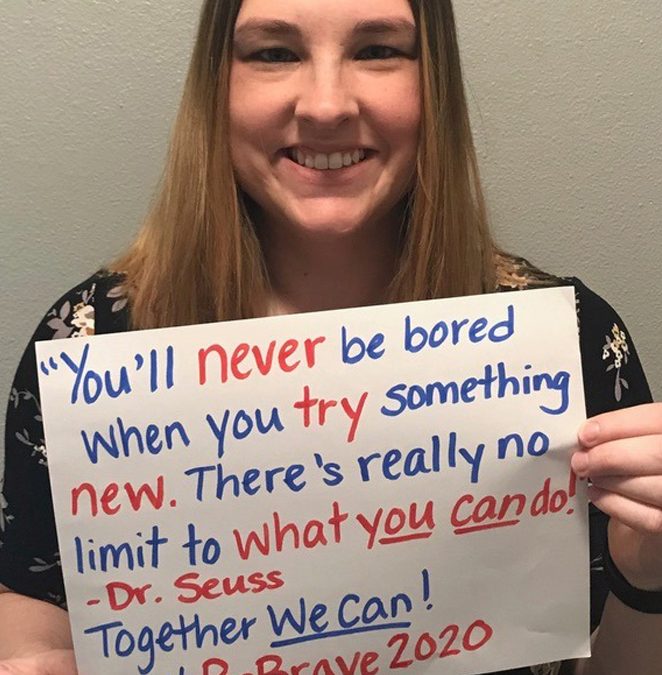 "You'll never be bored
When you try something
new. There's really no
limit to what you can do!"
-Dr. Seuss
Together We Can!
Brave 2020